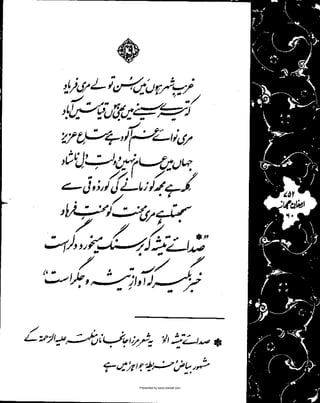 غریبِ شہر ہوں میں، سُن تو لے مری فریاد
کہ تیرے سینے میں بھی ہوں قیامتیں آباد
مری نوائے غم آلود ہے متاعِ عزیز
جہاں میں عام نہیں دولتِ دلِ ناشاد
گلہ ہے مجھ کو زمانے کی کور ذوقی سے
سمجھتا ہے مری محنت کو محنتِ فرہاد
"صدائے تیشہ کہ بر سنگ میخورد دگر است
خبر بگیر کہ آوازِ تیشہ و جگر است"
* صدائے تیشہ الخ یہ شعر مرزا جانجاناں مظہر علیہ الرحمۃ کے
مشہور بیاض خریطۂ جواہر میں ہے
۷۵۲
ارمغان حجاز
۶۰